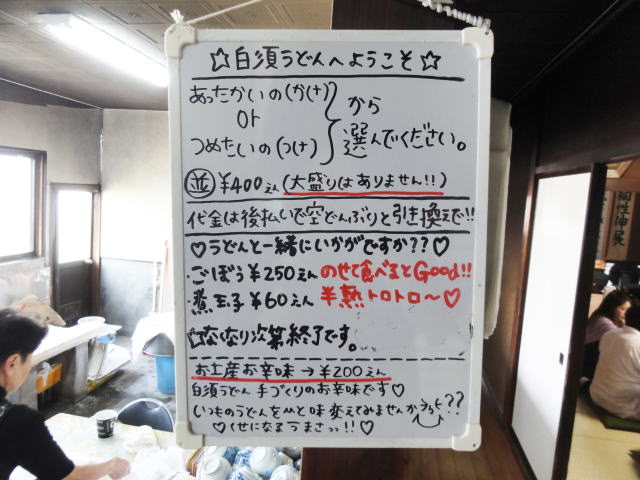 ☆白須うどんへようこそ☆
あったかいの(かけ)
or
つめたいの(つけ)
から
選んでください。
並 ¥400えん(大盛りはありません!!)
代金は後払いで空どんぶりと引き換えで!!
♡うどんと一緒にいかがですか??♡
・ごぼう¥250えん のせて食べるとGood!!
・煮玉子¥60えん 半熟トロトロ〜♡
☆なくなり次第終了です。
お土産お辛味→¥200えん
白須うどん手づくりのお辛味です♡
いつものうどんをひと味変えてみませんか??
♡くせになるうまさっ!!♡